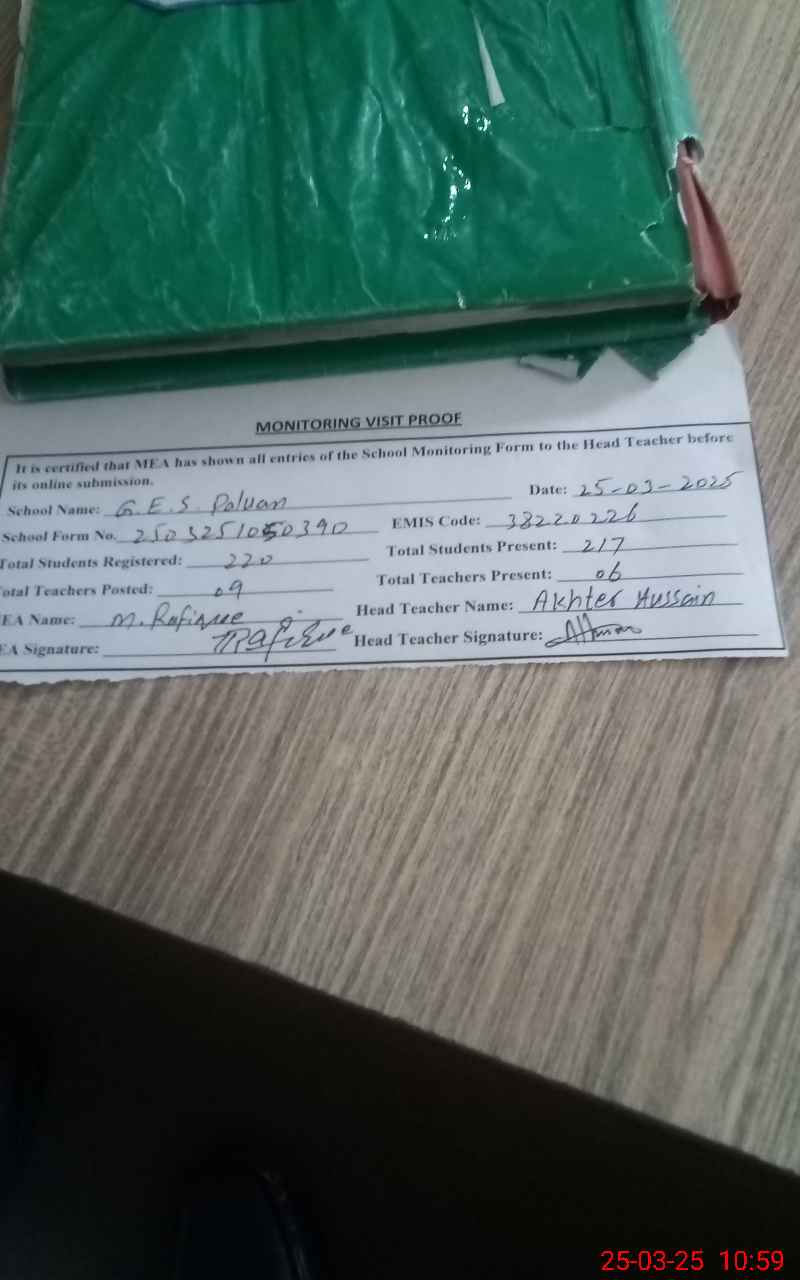 MONITORING VISIT PROOF
It is certified that MEA has shown all entries of the School Monitoring Form to the Head Teacher before
its online submission.
Date: 25-03-2025
School Name: G.E.S. Paluan
School Form No. 2503251050390 EMIS Code: 38220226
Total Students Registered: 220 Total Students Present: 217
otal Teachers Posted: 09 Total Teachers Present: 06
EA Name: M. Rafique Head Teacher Name: Akhter Hussain
EA Signature: Rafique Head Teacher Signature:
25-03-25 10:59